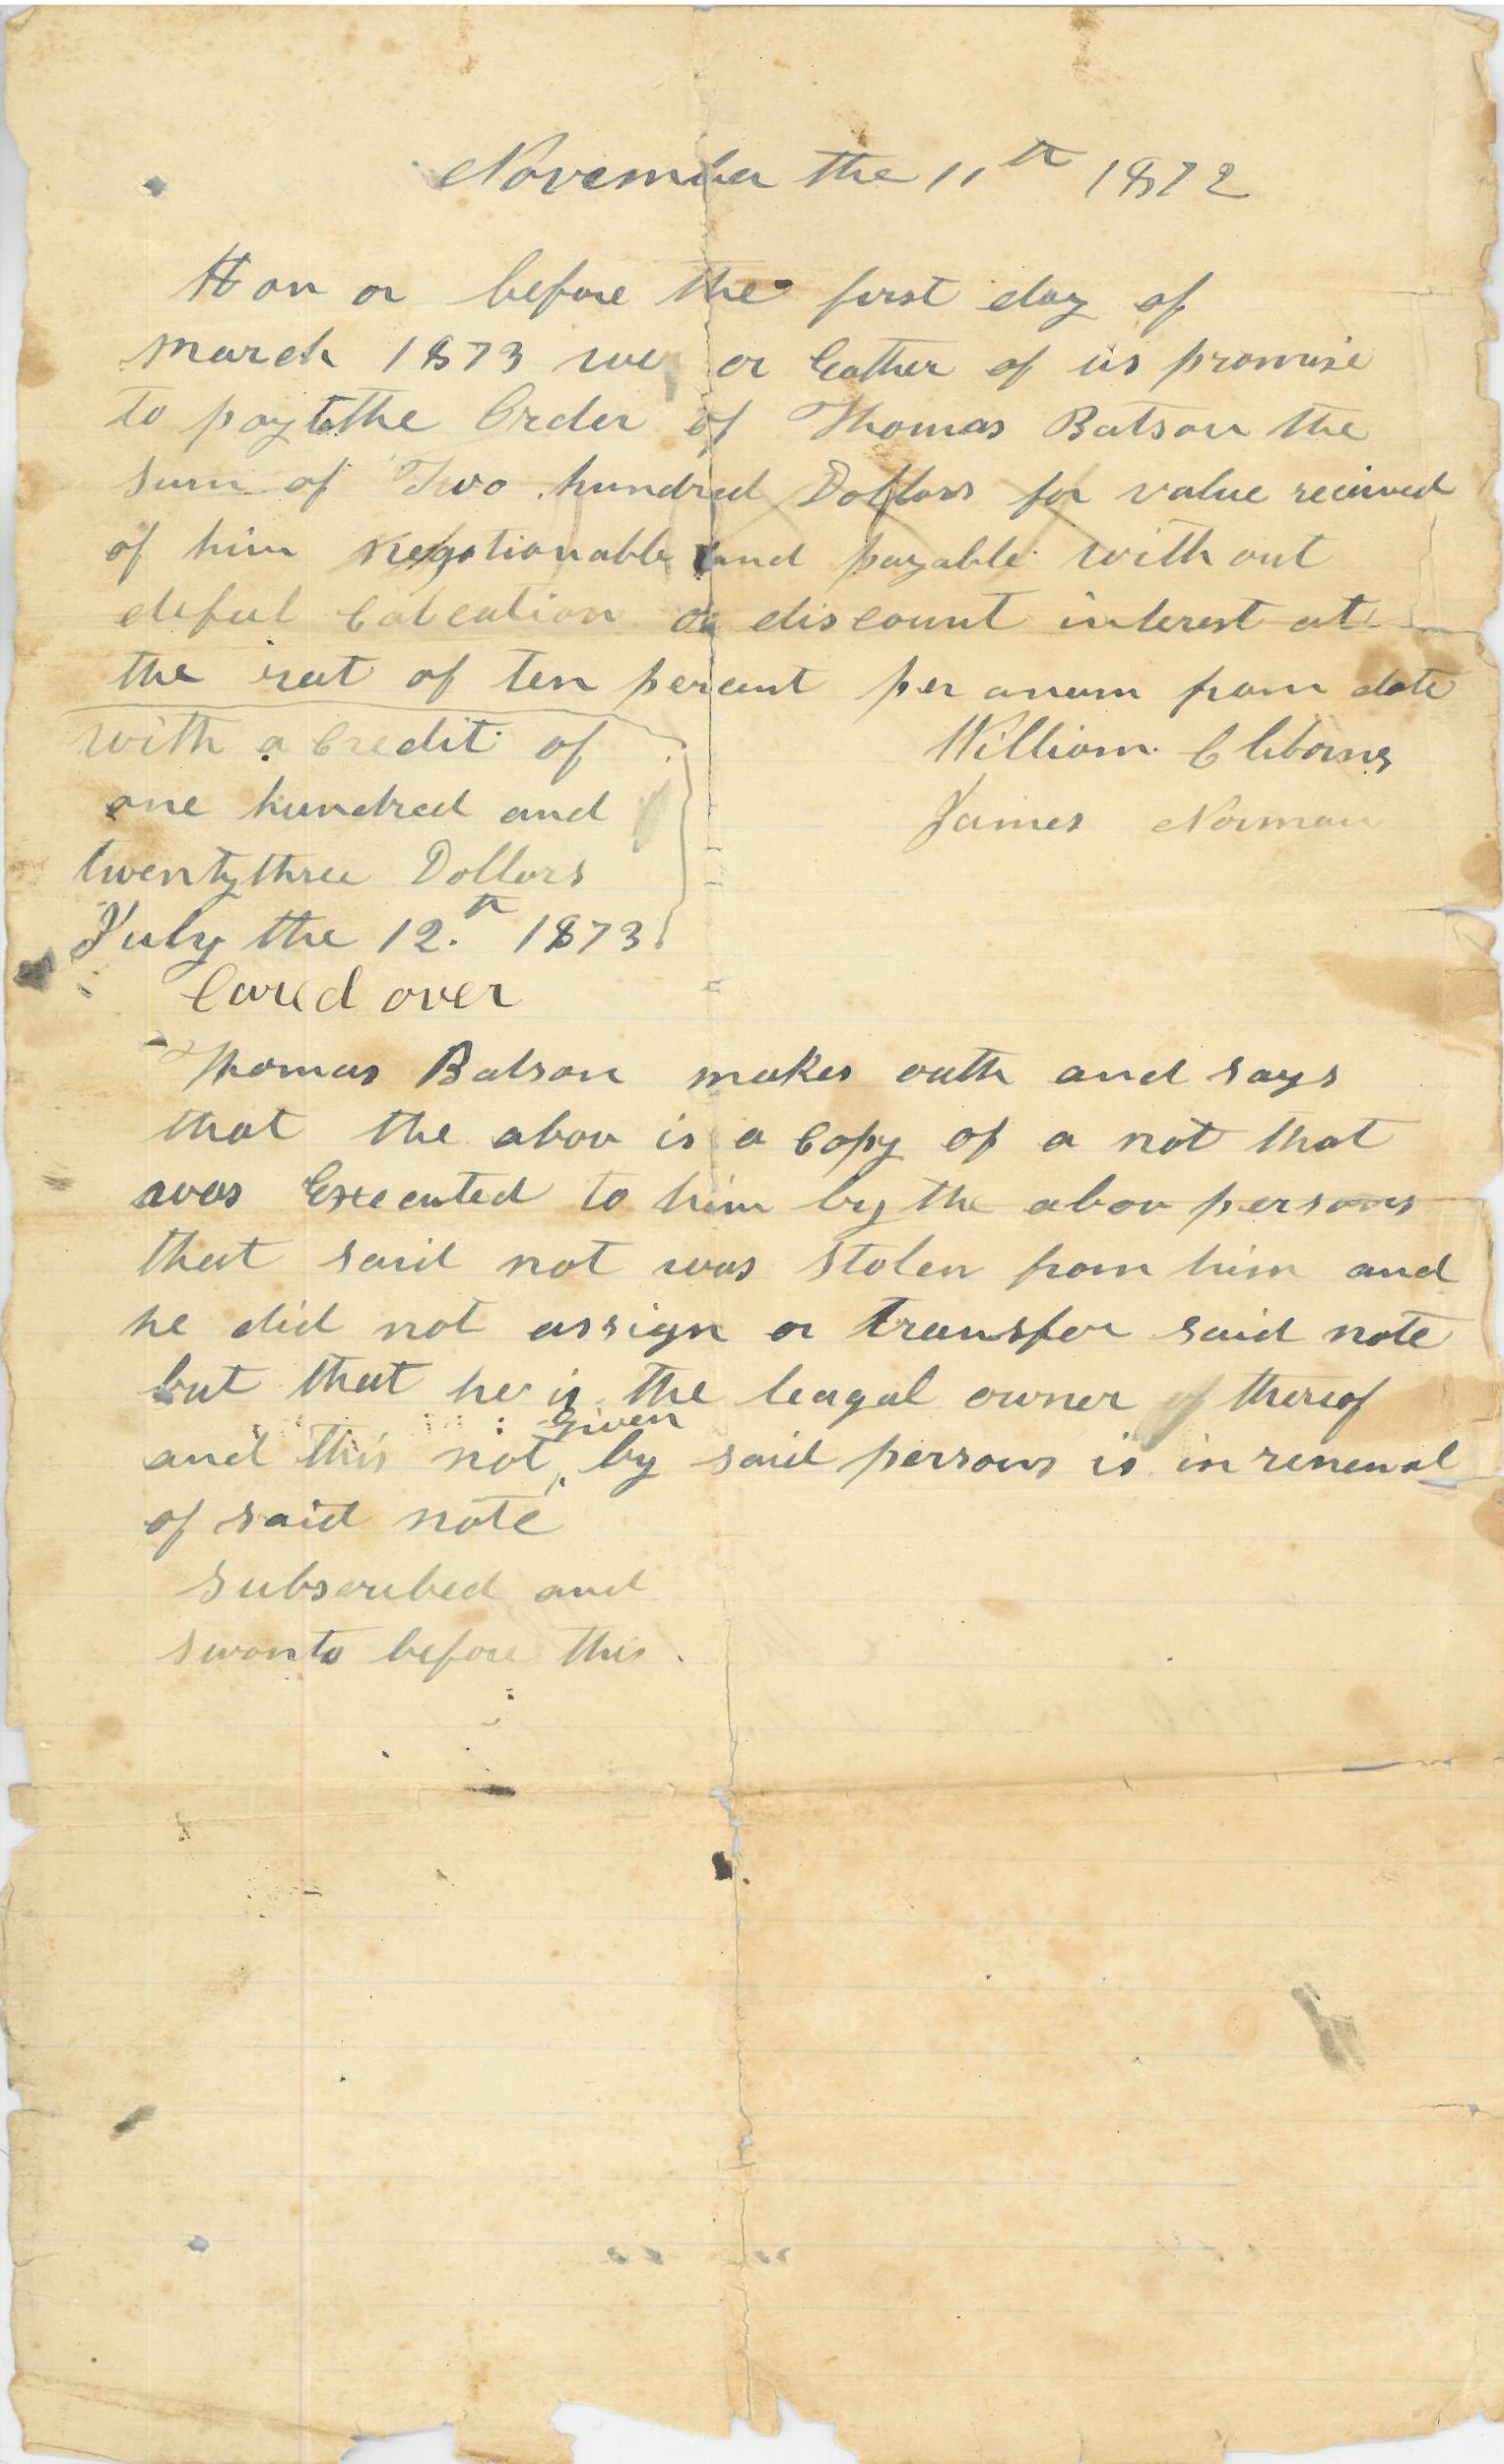 November the 11th 1872
on or before the first day of
march 1873 we or Eather of us promise
to pay to the Order of Thomas Batson the
sum of Two hundred Dollars for value recieved
of him Negotionable and payable with out
defeal Calcation or discount interest at
the reat of ten percent per anum from date
with a Credit of
one hundred and
twenty three Dollars
July the 12.th 1873
William Cliborne
James Norman
Cared over
Thomas Batson makes oath and says
that the abov is a Copy of a not that
was Executed to him by the abov persons
that said not was stolen from him and
he did not assign or transfer said note
but that he is the leagal owner of thereof
and this not given by said persons is in renewal
of said note
Subscribed and
sworn to before this